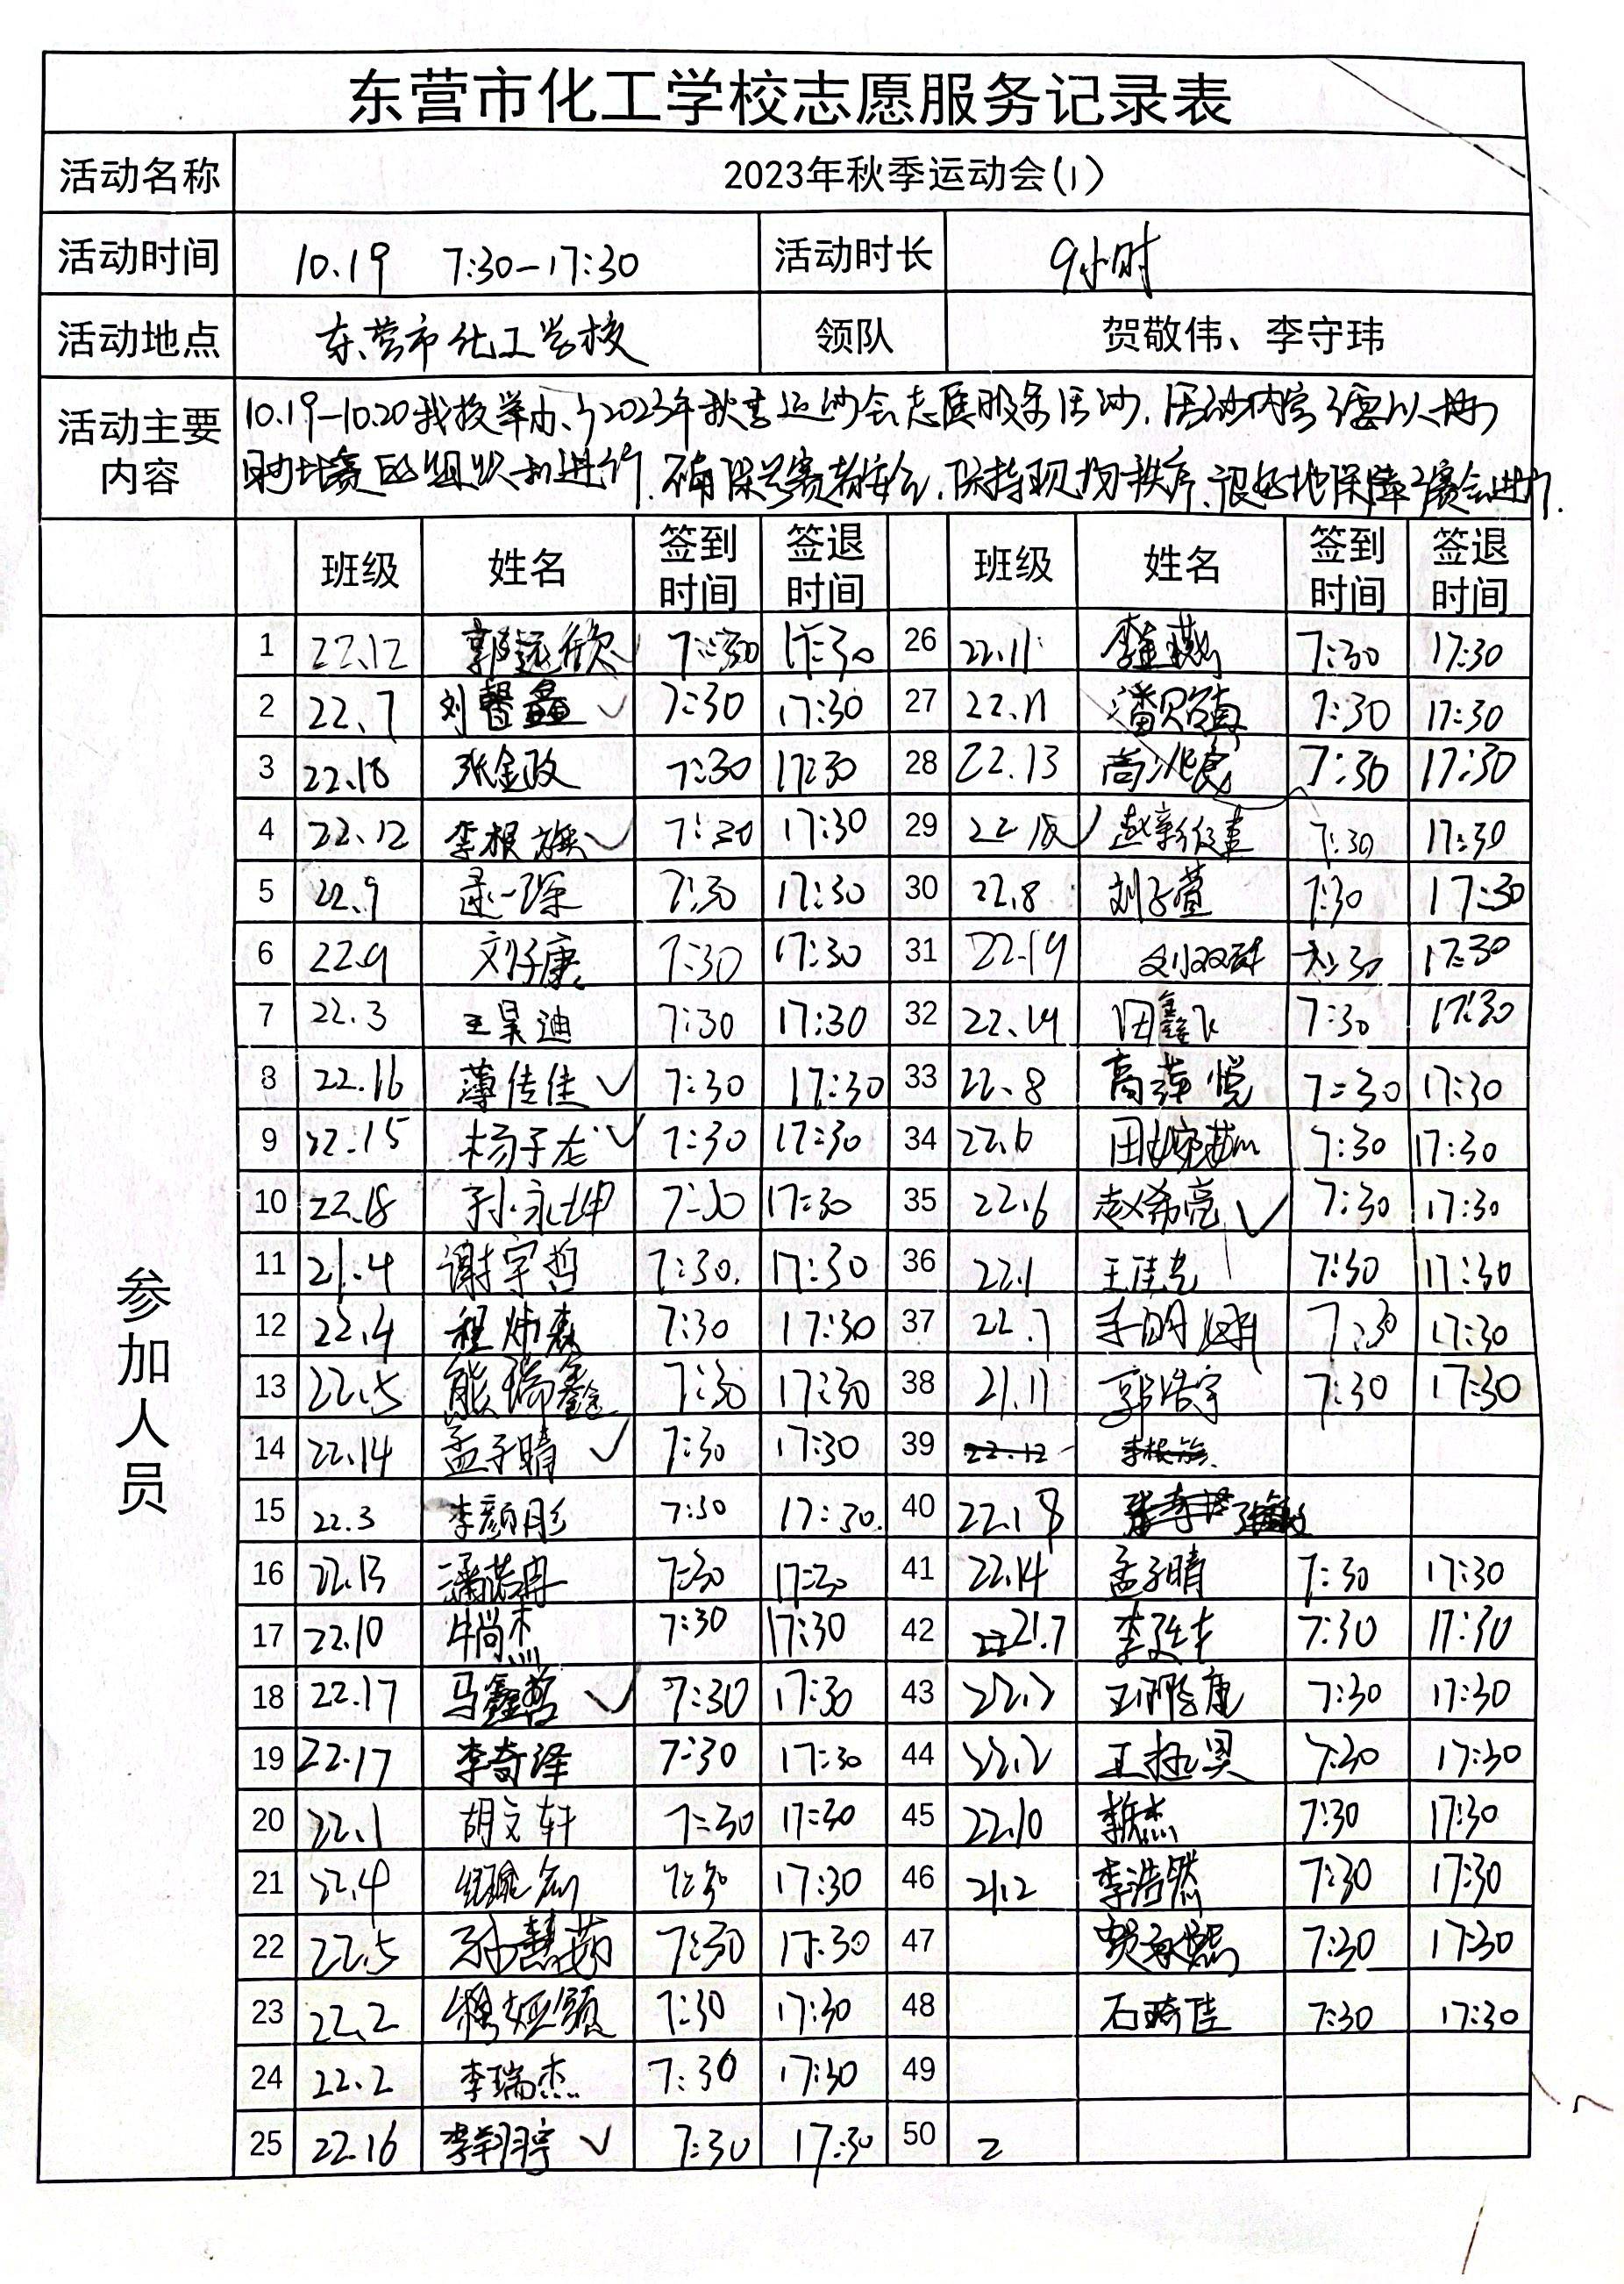 东营市化工学校志愿服务记录表
活动名称 2023年秋季运动会(1)
活动时间 10.19 7:30-17:30 活动时长 9小时
活动地点 东营市化工学校 领队 贺敬伟、李守玮
活动主要内容 10.19-10.20我校举办了2023年秋季运动会志愿服务活动,活动内容主要以协
助比赛的组织和进行,确保参赛者安全,保持现场秩序,很好地保障了赛会进行.
班级 姓名 签到时间 签退时间 班级 姓名 签到时间 签退时间
参加人员
1 22.12 郭远欣 7:30 17:30 26 22.11 7:30 17:30
2 22.7 刘督鑫 7:30 17:30 27 22.11 潘 7:30 17:30
3 22.18 张金政 7:30 17:30 28 22.13 7:30 17:30
4 22.12 李根旗 7:30 17:30 29 22 赵新 7:30 17:30
5 22.9 逯一琛 7:30 17:30 30 22.8 刘子萱 7:30 17:30
6 22.9 刘子康 7:30 17:30 31 22.19 刘双 7:30 17:30
7 22.3 王昊迪 7:30 17:30 32 22.19 田鑫飞 7:30 17:30
8 22.16 薄佳佳 7:30 17:30 33 22.8 高萍悦 7:30 17:30
9 22.15 杨子龙 7:30 17:30 34 22.6 田 7:30 17:30
10 22.18 孙永坤 7:30 17:30 35 22.6 赵希亮 7:30 17:30
11 21.4 谢宇哲 7:30 17:30 36 22.1 王佳 7:30 17:30
12 22.4 程炳森 7:30 17:30 37 22.7 李明 7:30 17:30
13 22.5 熊瑞鑫 7:30 17:30 38 21.11 郭浩宇 7:30 17:30
14 22.14 孟子晴 7:30 17:30 39 22.12
15 22.3 李颜彤 7:30 17:30 40 22.18
16 22.13 潘诺冉 7:30 17:30 41 22.14 孟子晴 7:30 17:30
17 22.10 牛尚杰 7:30 17:30 42 21.7 李延丰 7:30 17:30
18 22.17 马鑫哲 7:30 17:30 43 22.2 王鹏康 7:30 17:30
19 22.17 李奇泽 7:30 17:30 44 22.2 王 7:30 17:30
20 22.1 胡文轩 7:30 17:30 45 22.10 杰 7:30 17:30
21 22.4 7:30 17:30 46 21.2 李浩然 7:30 17:30
22 22.5 孙慧茹 7:30 17:30 47 7:30 17:30
23 22.2 7:30 17:30 48 石琦佳 7:30 17:30
24 22.2 李瑞杰 7:30 17:30 49
25 22.16 李翔宇 7:30 17:30 50 2